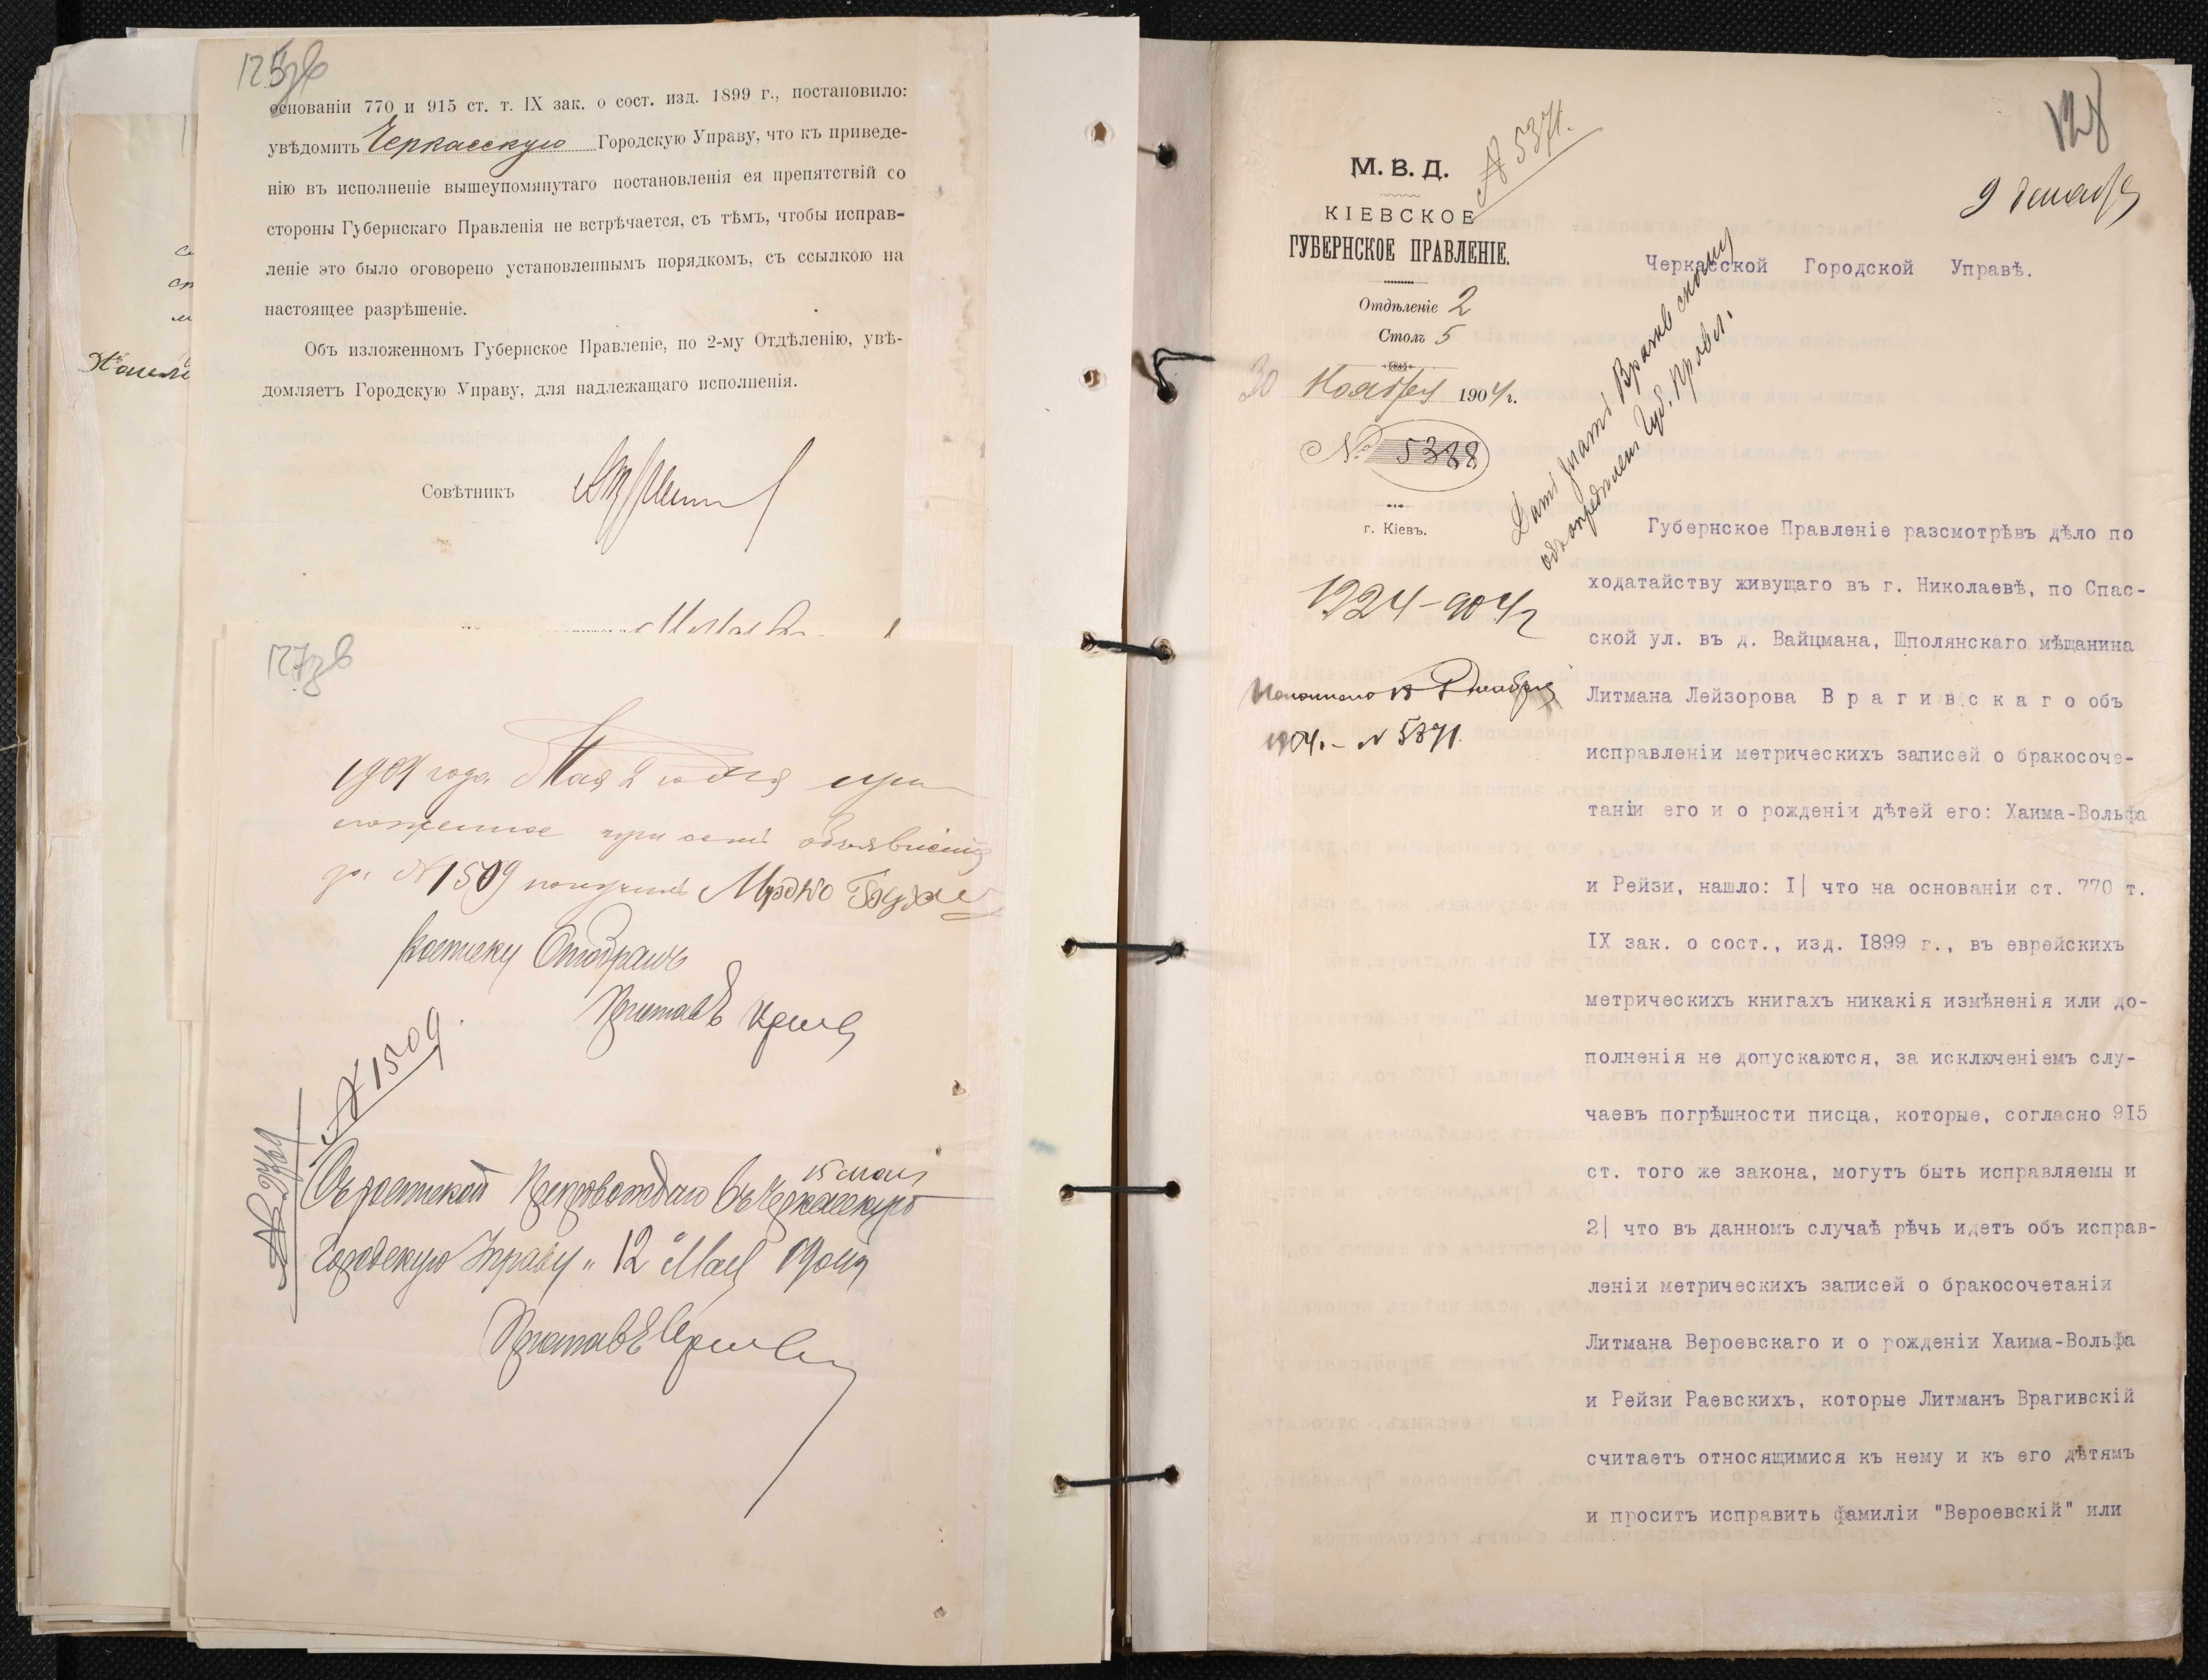 125зв
основаніи 770 и 915 ст. т. IX зак. о сост. изд. 1899 г., постановило:
увѣдомить Черкасскую Городскую Управу, что къ приведе-
нію въ исполненіе вышеупомянутаго постановленія ея препятствій со
стороны Губернскаго Правленія не встрѣчается, съ тѣмъ, чтобы исправ-
леніе это было оговорено установленнымъ порядкомъ, съ ссылкою на
настоящее разрѣшеніе.
Объ изложенномъ Губернское Правленіе, по 2-му Отдѣленію, увѣ-
домляетъ Городскую Управу, для надлежащаго исполненія.
Совѣтникъ
127зв
1904 года Мая 2 дня при
ложенное при семъ объявленіе
за № 1509 получилъ
Росписку Отобралъ
Приставъ
№ 1509.
15 мая
Съ роспиской Препровождаю въ Черкасскую
Городскую Управу "12" Мая 1904
Приставъ
128
№ 5371.
9 декабря
М. В. Д.
КІЕВСКОЕ
ГУБЕРНСКОЕ ПРАВЛЕНІЕ.
Отдѣленіе 2
Столъ 5
30 Ноября 1904 г.
№ 5388
г. Кіевъ.
1224-904 г
Исполнено 13 Декабря
1904. - № 5371.
Дать знать Врагивскому
объ опредѣленіи Губ. Правл.
Черкасской Городской Управѣ.
Губернское Правленіе разсмотрѣвъ дѣло по
ходатайству живущаго въ г. Николаевѣ, по Спас-
ской ул. въ д. Вайцмана, Шполянскаго мѣщанина
Литмана Лейзорова В р а г и в с к а г о объ
исправленіи метрическихъ записей о бракосоче-
таніи его и о рожденіи дѣтей его: Хаима-Вольфа
и Рейзи, нашло: I| что на основаніи ст. 770 т.
IX зак. о сост., изд. 1899 г., въ еврейскихъ
метрическихъ книгахъ никакія измѣненія или до-
полненія не допускаются, за исключеніемъ слу-
чаевъ погрѣшности писца, которые, согласно 915
ст. того же закона, могутъ быть исправляемы и
2| что въ данномъ случаѣ рѣчь идетъ объ исправ-
леніи метрическихъ записей о бракосочетаніи
Литмана Вероевскаго и о рожденіи Хаима-Вольфа
и Рейзи Раевскихъ, которые Литманъ Врагивскій
считаетъ относящимися къ нему и къ его дѣтямъ
и проситъ исправить фамиліи "Вероевскій" или